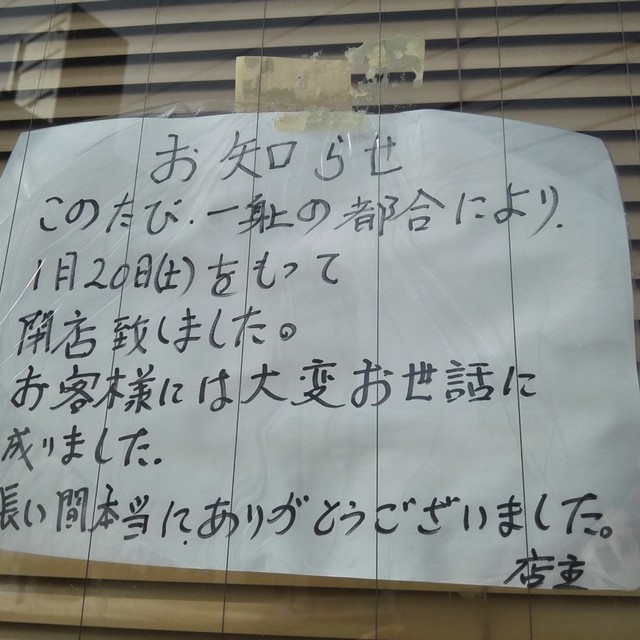 お知らせ
このたび、一身上の都合により、
1月20日(土)をもって
閉店致しました。
お客様には大変お世話に
成りました。
長い間本当に、ありがとうございました。
店主